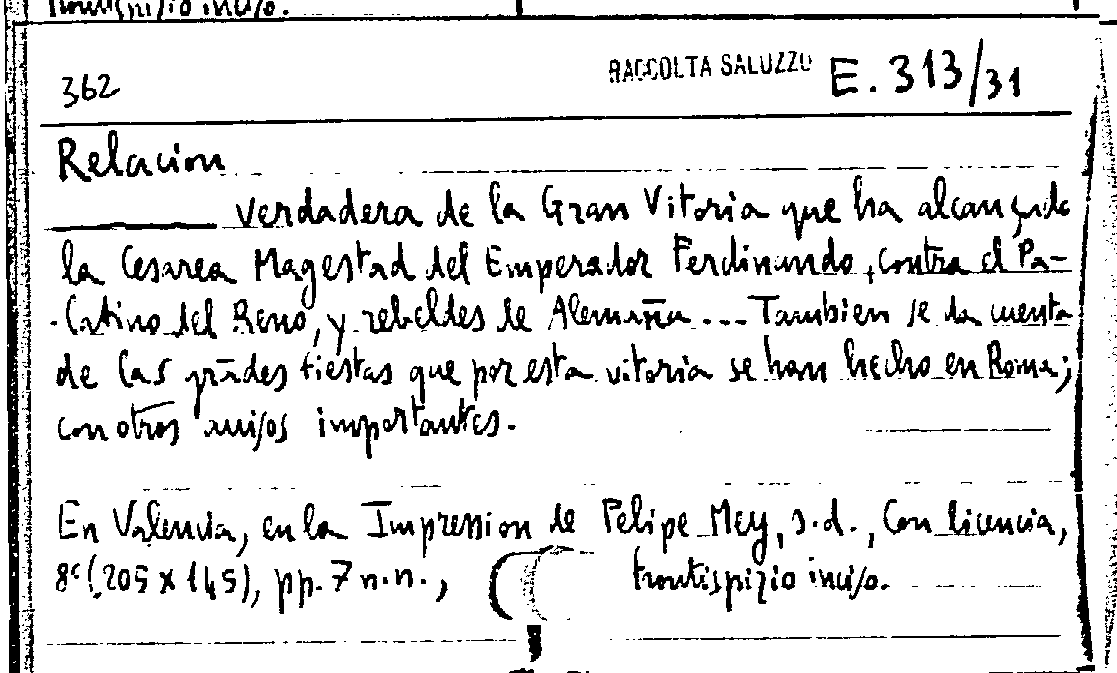 frontispizio inciso.
362
RACCOLTA SALUZZO E. 313/31
Relacion
verdadera de la Gran Vitoria que ha alcançado
la Cesarea Magestad del Emperador Ferdinando, contra el Pa-
latino del Reno, y rebeldes de Alemaña... Tambien se da cuenta
de las grādes fiestas que por esta vitoria se han hecho en Roma;
con otros auisos importantes.
En Valencia, en la Impression de Felipe Mey, s.d., Con licencia,
8º (205 x 145), pp. 7 n.n., frontispizio inciso.